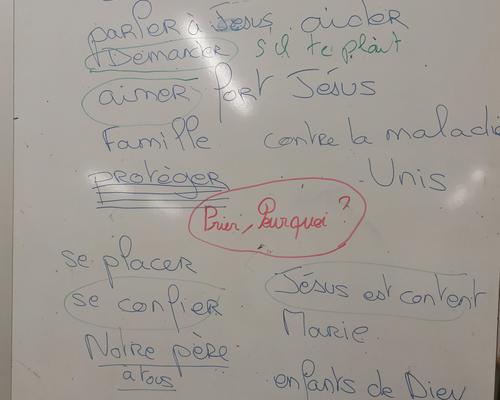 parler à Jésus aider
Demander s'il te plaît
aimer fort Jésus
Famille contre la maladie
protéger Unis
Prier, Pourquoi ?
se placer
se confier Jésus est content
Marie
Notre père
à tous
enfants de Dieu